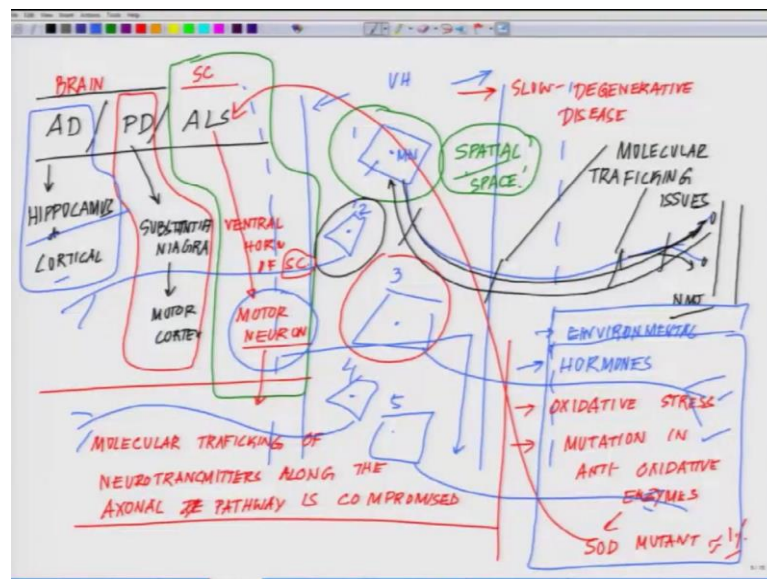 BRAIN
AD / PD /
SC
ALS
HIPPOCAMUS
+
CORTICAL
SUBSTANTIA
NIAGRA
MOTOR
CORTEX
VENTRAL
HORN
OF SC
MOTOR
NEURON
VH
1
MN
2
3
4
5
SPATIAL
SPACE!
SLOW- DEGENERATIVE
DISEASE
MOLECULAR
TRAFICKING
ISSUES
NMJ
→ ENVIRONMENTAL
→ HORMONES
→ OXIDATIVE STRESS
→ MUTATION IN
ANTI OXIDATIVE
ENZYMES
SOD MUTANT
MOLECULAR TRAFICKING OF
NEUROTRANSMITTERS ALONG THE
AXONAL PATHWAY IS COMPROMISED